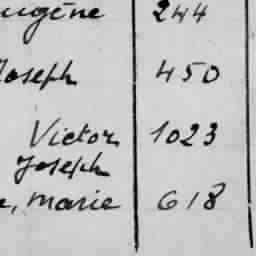 ugène 244
Joseph 450
Victor 1023
Joseph
, Marie 618